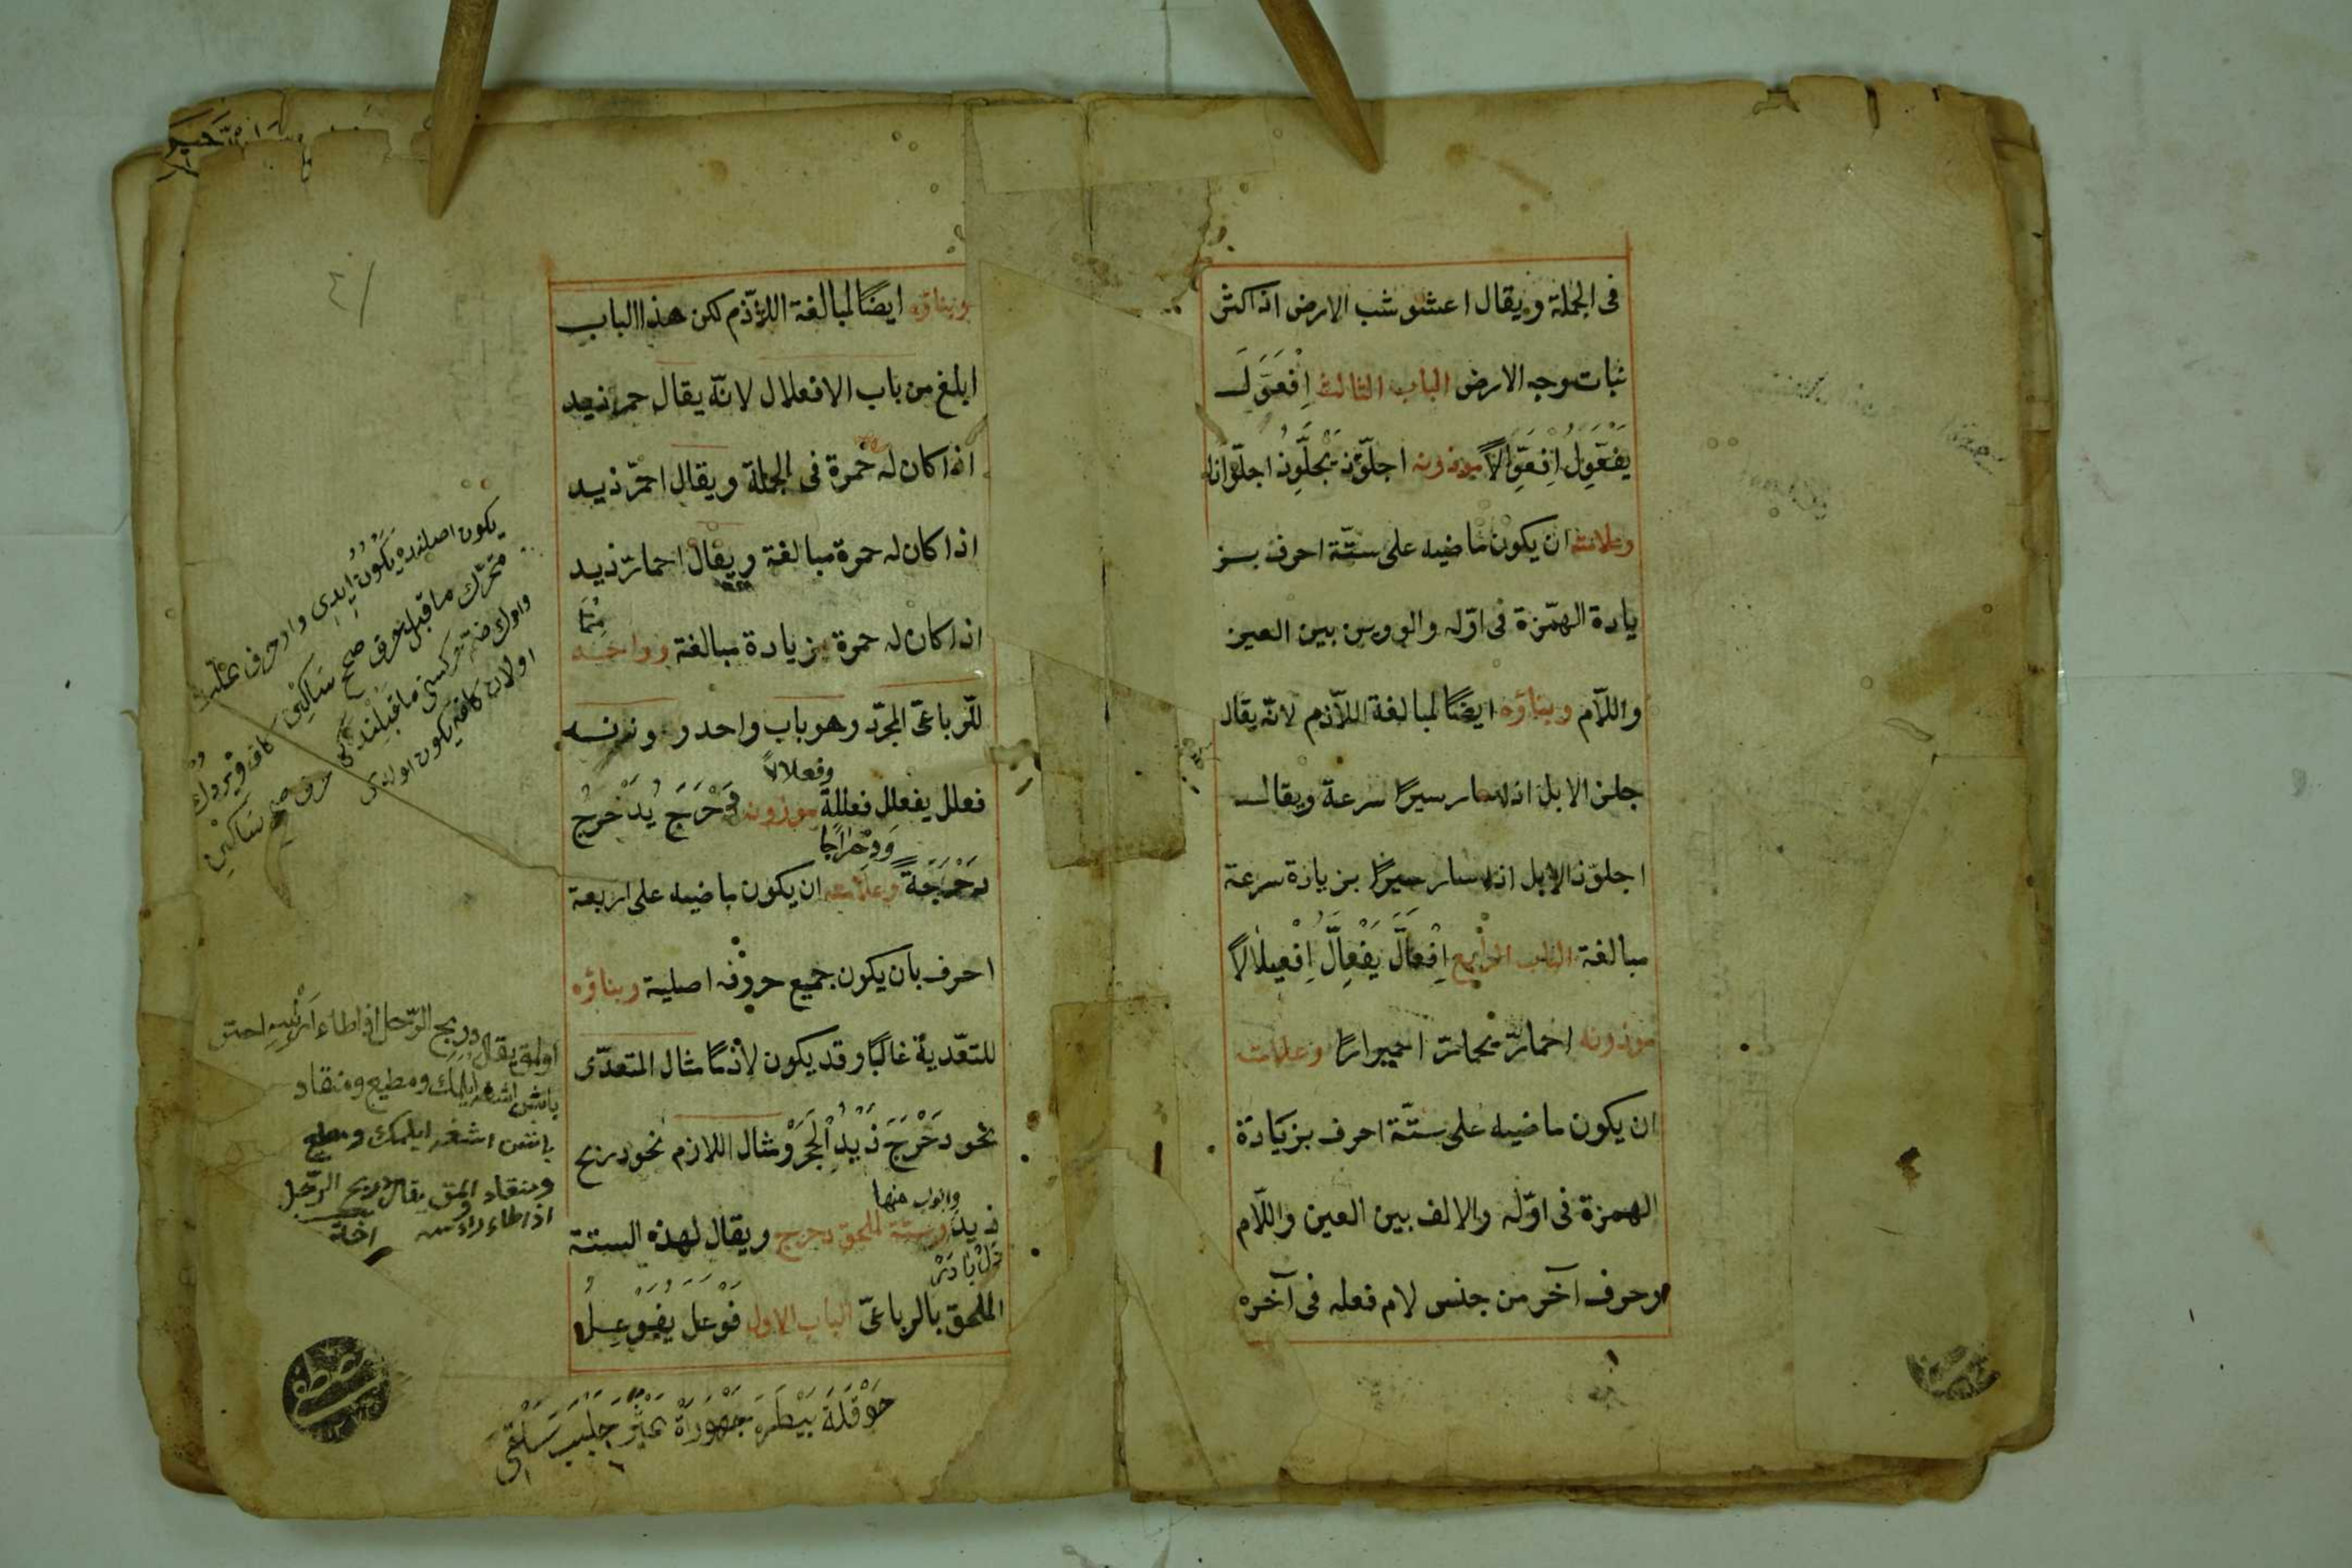 فى الجملة ويقال اعشوشب الارض اذا كثر
نبات وجه الارض الباب الثالث اِفْعَوَّلَ
يَفْعَوِّلُ اِفْعِوَّالاً موزونه اجلوّذ يَجْلَوِّذُ اجلوّاذا
وعلامته ان يكون ماضيه على ستّة احرف بز
يادة الهمزة فى اوّله والووين بين العين
واللّام وبناؤه ايضًا لمبالغة اللاّزم لانّه يقال
جلذ الابل اذا سار سيرًا سرعة ويقال
اجلوّذ الابل اذا سار سيرًا بزيادة سرعة
مبالغة الباب الرابع اِفْعَالَّ يَفْعَالُّ اِفْعِيلَالاً
موزونه احمارّ يحمارّ احميرارًا وعلامته
ان يكون ماضيه على ستّة احرف بزيَادة
الهمزة فى اوّله والالف بين العين واللّام
وحرف آخر من جنس لام فعله فى آخره
وبناؤه ايضًا لمبالغة اللاّزم لكن هذا الباب
ابلغ من باب الافعلال لانّه يقال حمر زيد
اذا كان له حمرة فى الجملة ويقال احمرّ زيد
اذا كان له حمرة مبالغة ويقال احمارّ زيد
اذا كان له حمرة بزيادة مبالغة وواحد
للّرباعىّ المجرّد وهو باب واحد ووزنه
وفعلالاً
فعلل يفعلل فعللة موزونه دَحْرَجَ يُدَحْرِجُ
وَدِحْرَاجًا
دَحْرَجَةً وعلامته ان يكون ماضيه على اربعة
احرف بان يكون جميع حروفه اصلية وبناؤه
للتعّدية غالبًا وقد يكون لازمًا مثال المتعدّى
نحو دَحْرَجَ زَيْدُ الْحَجَرَ ومثال اللازم نحو دربح
وابواب منها
زيد وستّة لملحق دحرج ويقال لهذه الستة
الملحق بالرباعىّ الباب الاول فَوْعَلَ يُفَوْعِلُ
حَوْقَلَة بَيْطَرَ جَهْوَرَة عَثْيَرَ جَلْبَبَ سَلْقَى
يكون اصلنده يَكْوُنُ ايدى واو حرف علّت
متحرّك ماقبلى حرف صحيح ساكن
اولدى كافه يكون اولدى
يقال دربح الرّجل اذا طاء
باشن اشغه ايلمك ومطيع ومنقاد
باشن اشغه ايلمك ومطيع
ومنقاد اولمق يقال دربح الرّجل
اذا طاء راءسه